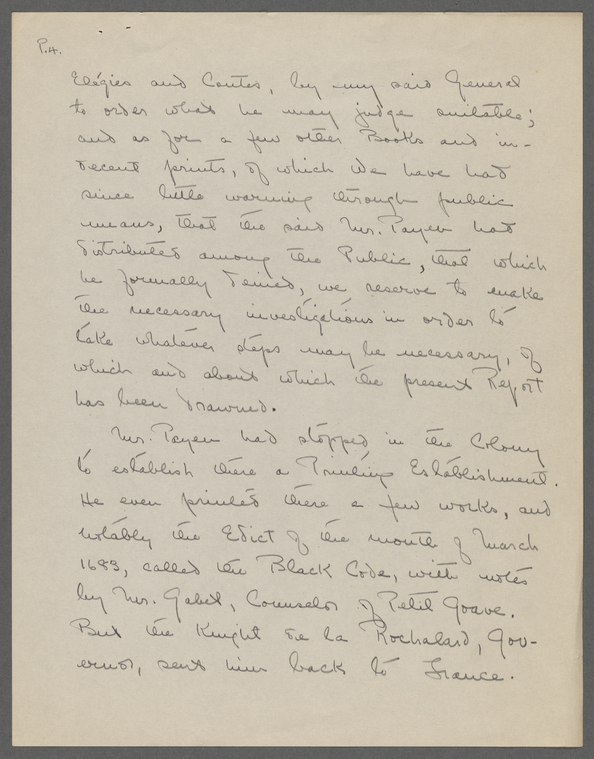 P.4.
Elégies and Contes, by my said General
to order what he may judge suitable;
and as for a few other Books and in-
decent prints, of which We have had
since little warning through public
means, that the said Mr. Payen had
distributed among the Public, that which
he formally denied, we reserve to make
the necessary investigations in order to
take whatever steps may be necessary, of
which and about which the present Report
has been drawned.
Mr. Payen had stopped in the Colony
to establish there a Printing Establishment.
He even printed there a few works, and
notably the Edict of the month of March
1683, called the Black Code, with notes
by Mr. Gabet, Counselor of Petit Goave.
But the Knight de la Rochalard, Gov-
ernor, sent him back to France.